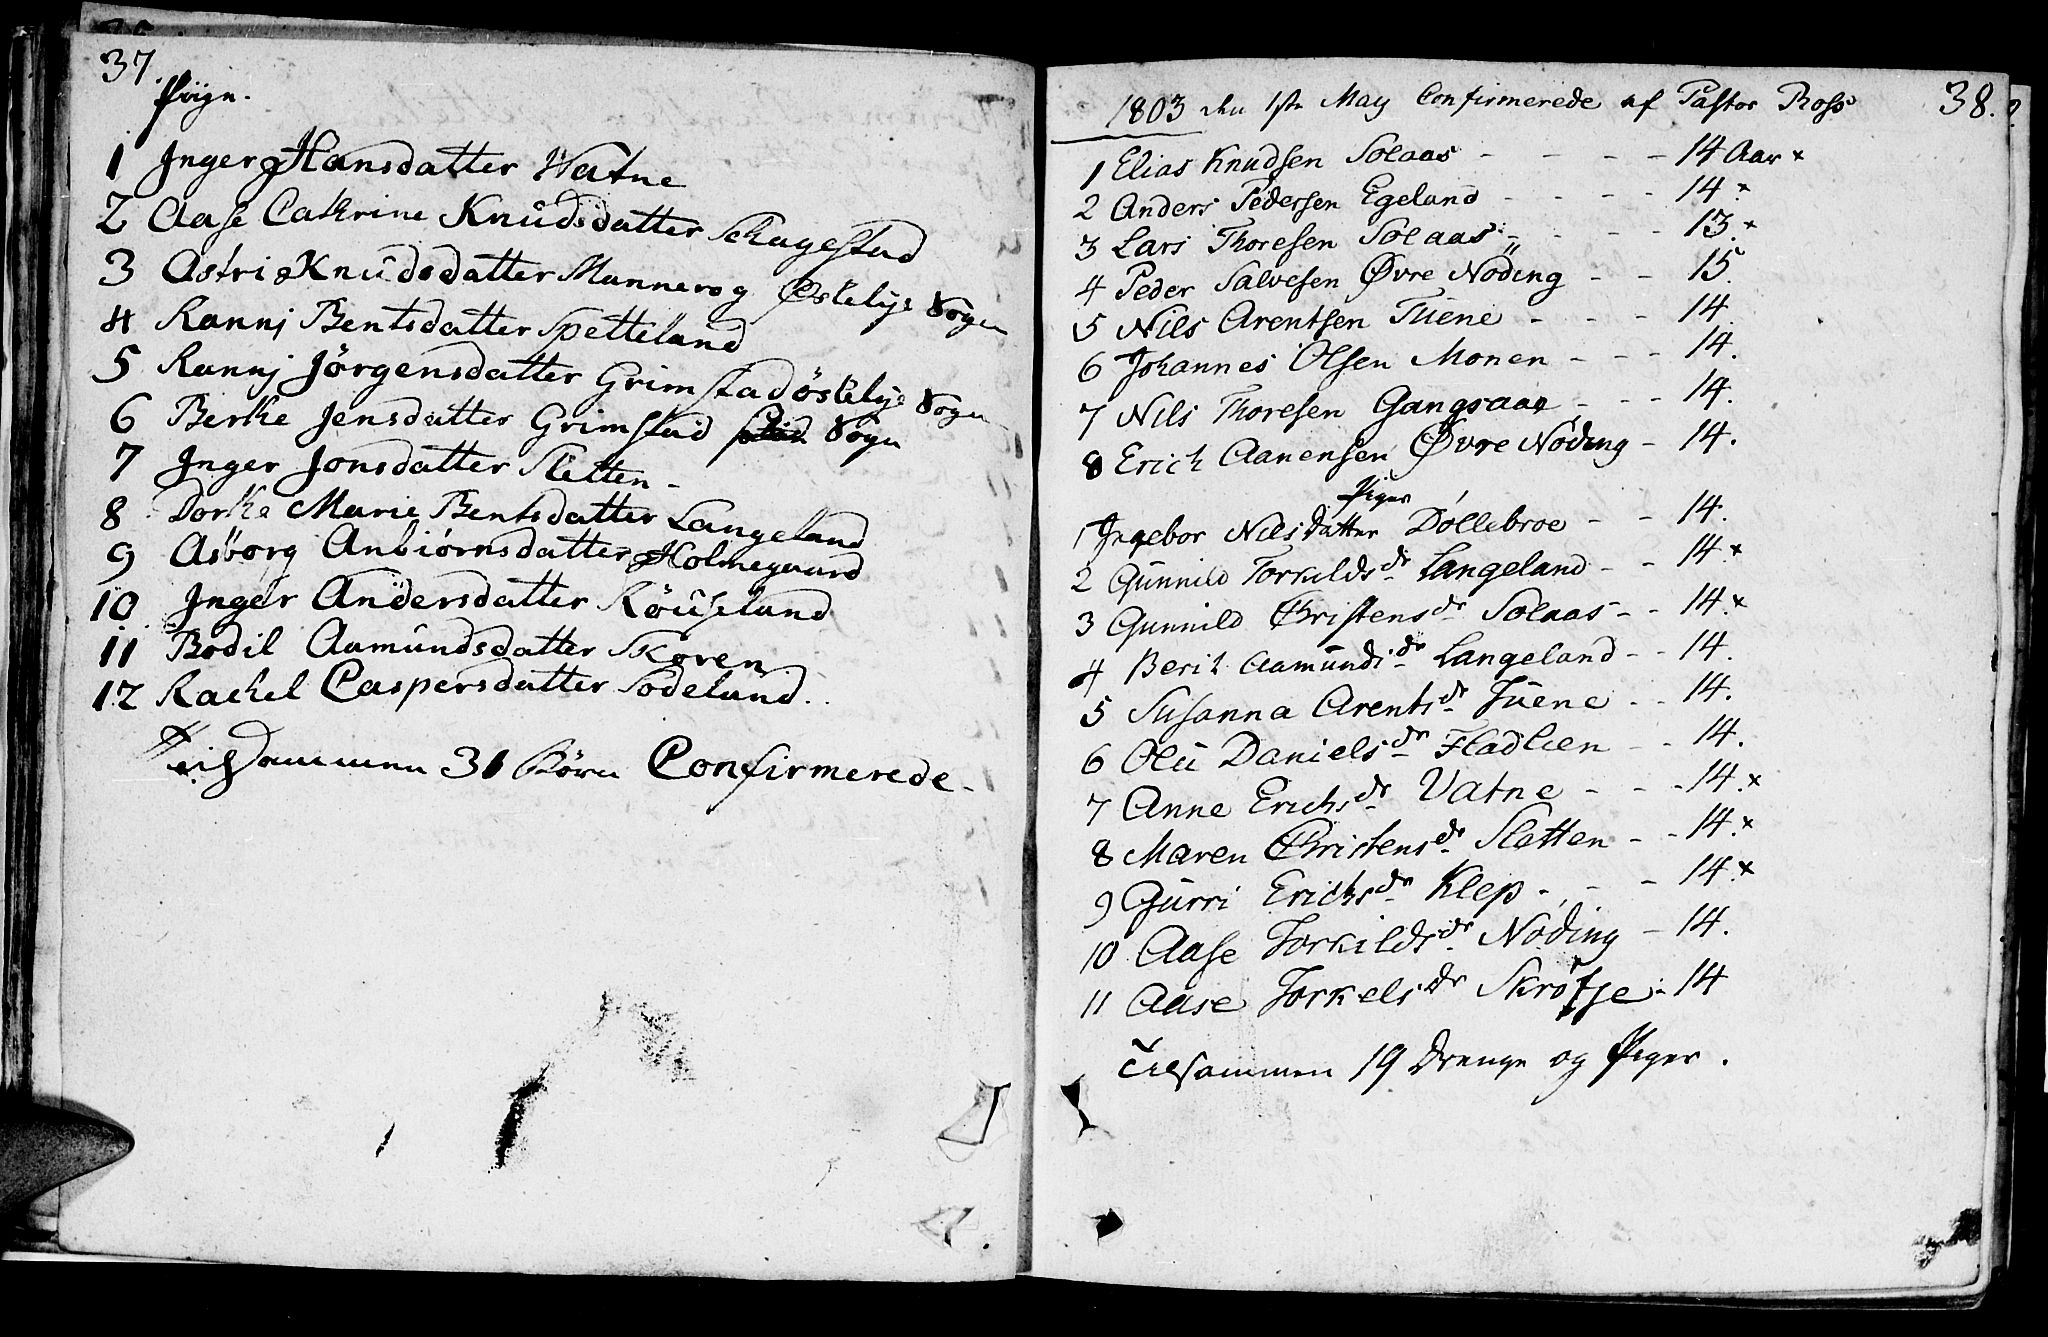 37.
Piign.
1 Inger Hansdatter Watne
2 Aase Cathrine Knudsdatter Schagestad
3 Astri Knudsdatter Mannerog Øslebye Sogn
4 Rannj Bentsdatter Spetteland
5 Rannj Jörgensdatter Grimstad öslebye Sogn
6 Berthe Jensdatter Grimstad Sogn
7 Inger Jonsdatter Sletten -
8 Dorthe Marie Bentsdatter Langeland
9 Asborg Anbiørnsdatter Holmegaard
10 Inger Andersdatter Röiseland
11 Bodil Aamundsdatter Skoren
12 Rachel Caspersdatter Sodeland.
Tilsammen 31 Börn Confirmerede -
38.
1803 den 1ste May Confirmerede af Pastor Ross
1 Elias Knudsen Solaas - - - - 14 Aar x
2 Anders Pedersen Egeland - - - - 14 x
3 Lars Thoresen Solaas - - - - 13. x
4 Peder Salvesen Øvre Nöding - - 15.
5 Nils Arentsen Tuene - - - 14
6 Johannes Olsen Monen - - - 14.
7 Nils Thoresen Gangsaae - - - 14.
8 Erich Aanensen Øvre Nöding - 14.
Piger
1 Ingebor Nilsdatter Döllebroe - - 14.
2 Gunnild Torkildsdr Langeland - - 14. x
3 Gunnild Christensdr Solaas - - 14. x
4 Berit Aamundsdr Langeland - - 14.
5 Susanna Arentsdr Tuene - - 14.
6 Olu Danielsdr Fladlien - - 14.
7 Anne Erichsdr Vatne - - - 14. x
8 Maren Christensdr Sletten - - 14. x
9 Gurri Erichsdr Klep - - - 14. x
10 Aase Torkildsdr Nöding - 14.
11 Aase Torkelsdr Skröfje - 14
Tilsammen 19 Drenge og Piger.